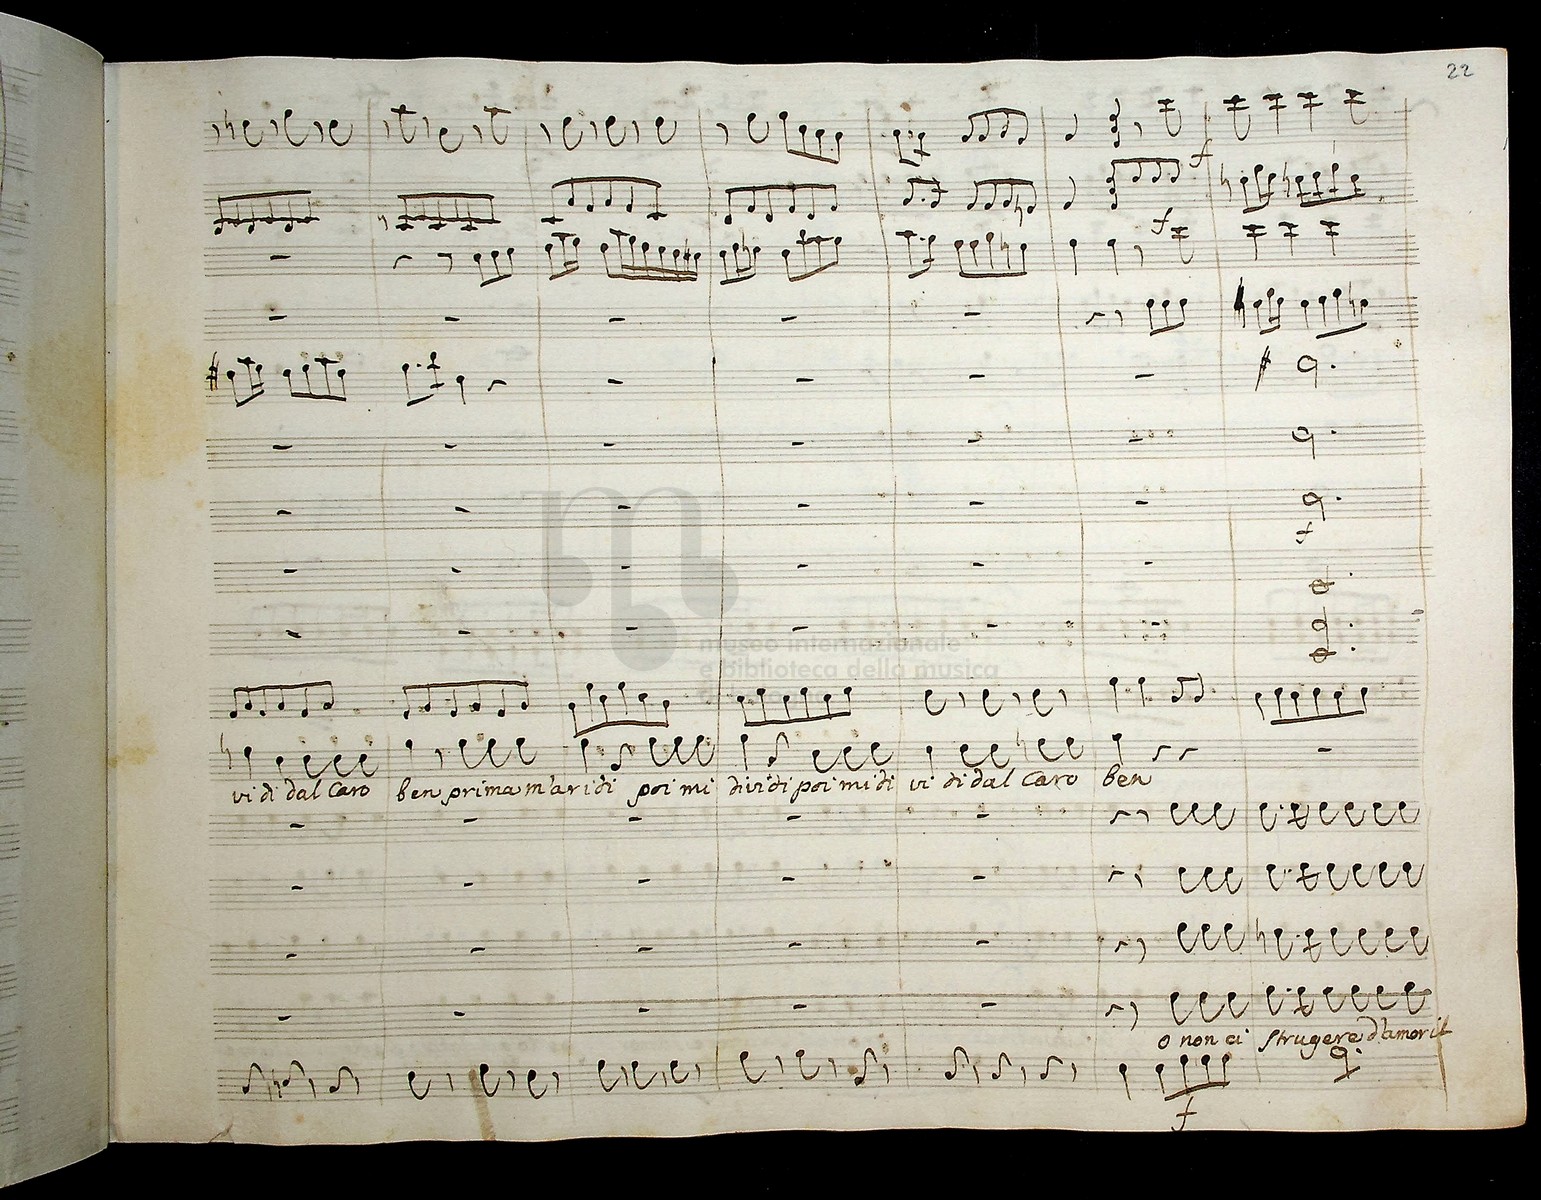 22
f
f
museo internazionale
e biblioteca della musica
f
vi di dal Caro ben prima m'aridi poi mi dividi poi mi di vi di dal Caro ben
o non ci strugere d'amor il
f